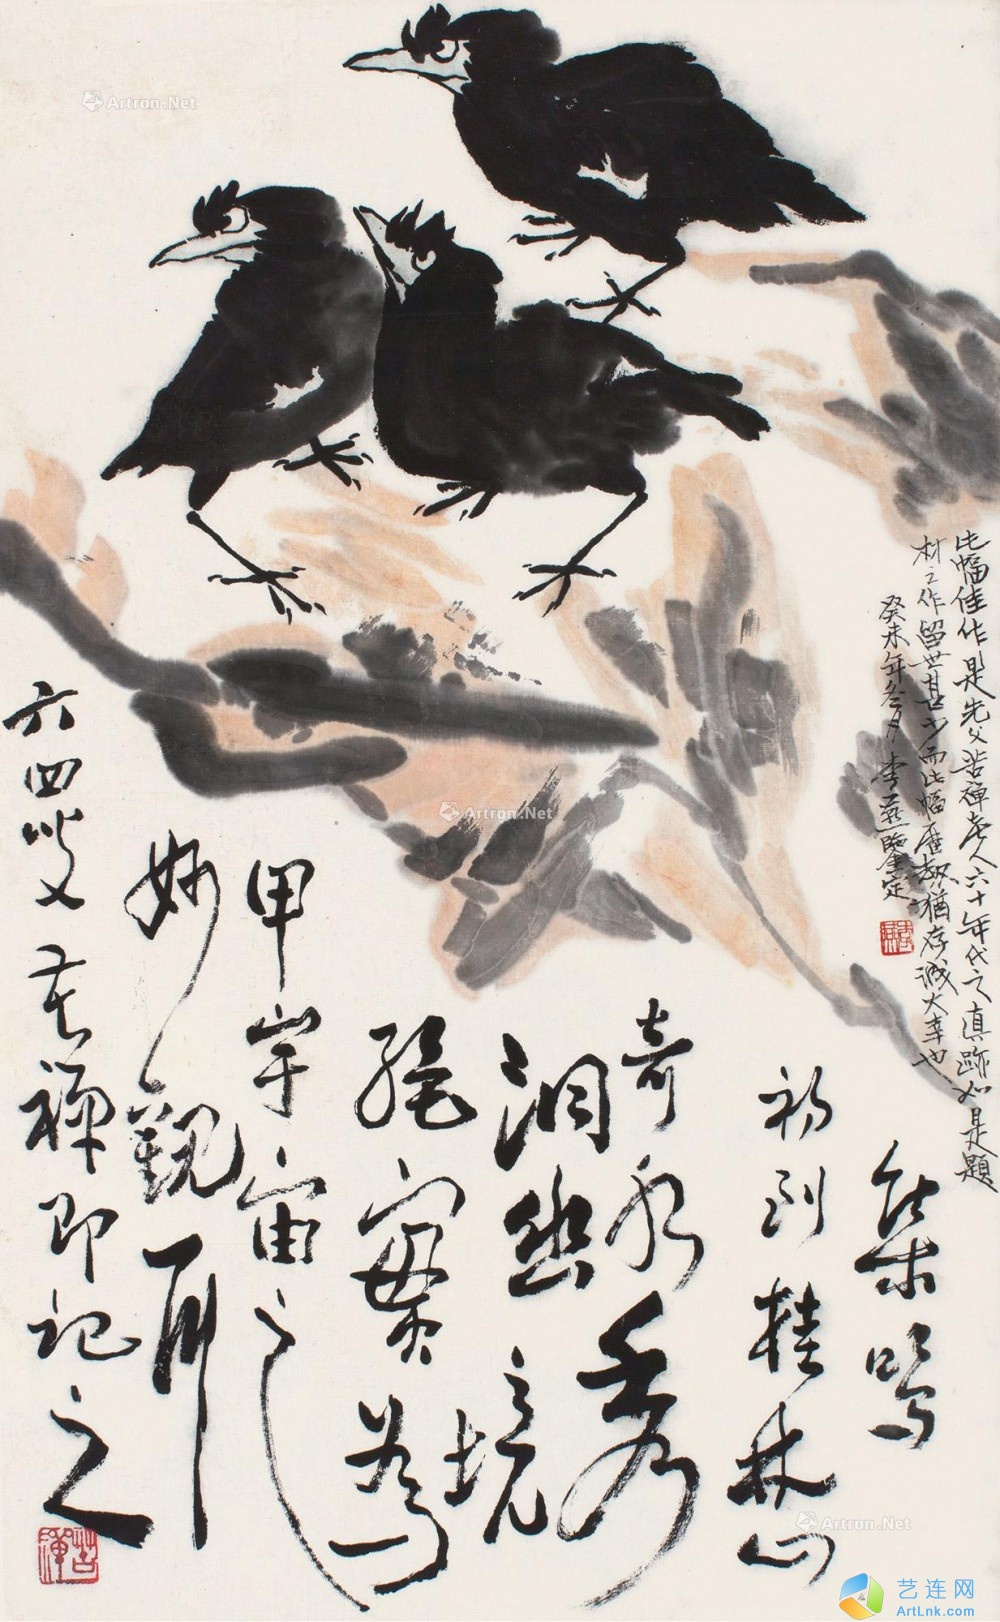 此幅佳作是先父苦禪老人六十年代之真跡如是題
材之作留世甚少而此幅歷劫猶存誠大幸也
癸未年叁月李燕鑒定
集鸣
初到桂林山
奇水秀
洞幽之境
實為
甲宇宙之
妙觀耳
六四叟苦禪即記之
苦禪
Artron.Net
Artron.Net
Artron.Net
艺连网
ArtLnk.com